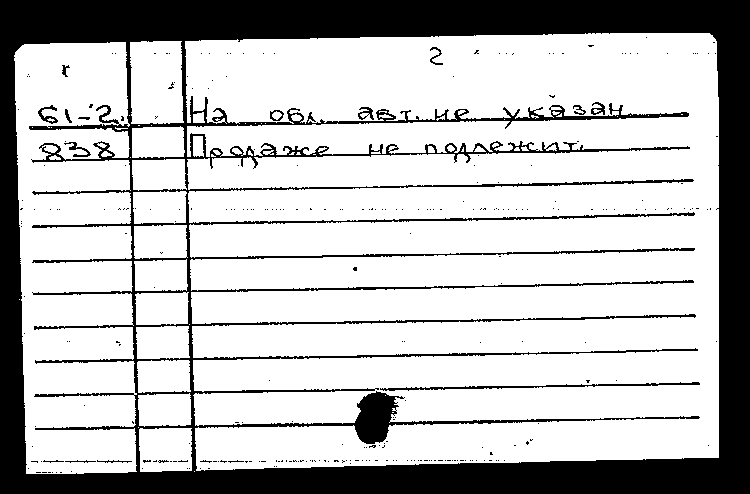 2
61-2. На обл. авт. не указан
838 Продаже не подлежит.